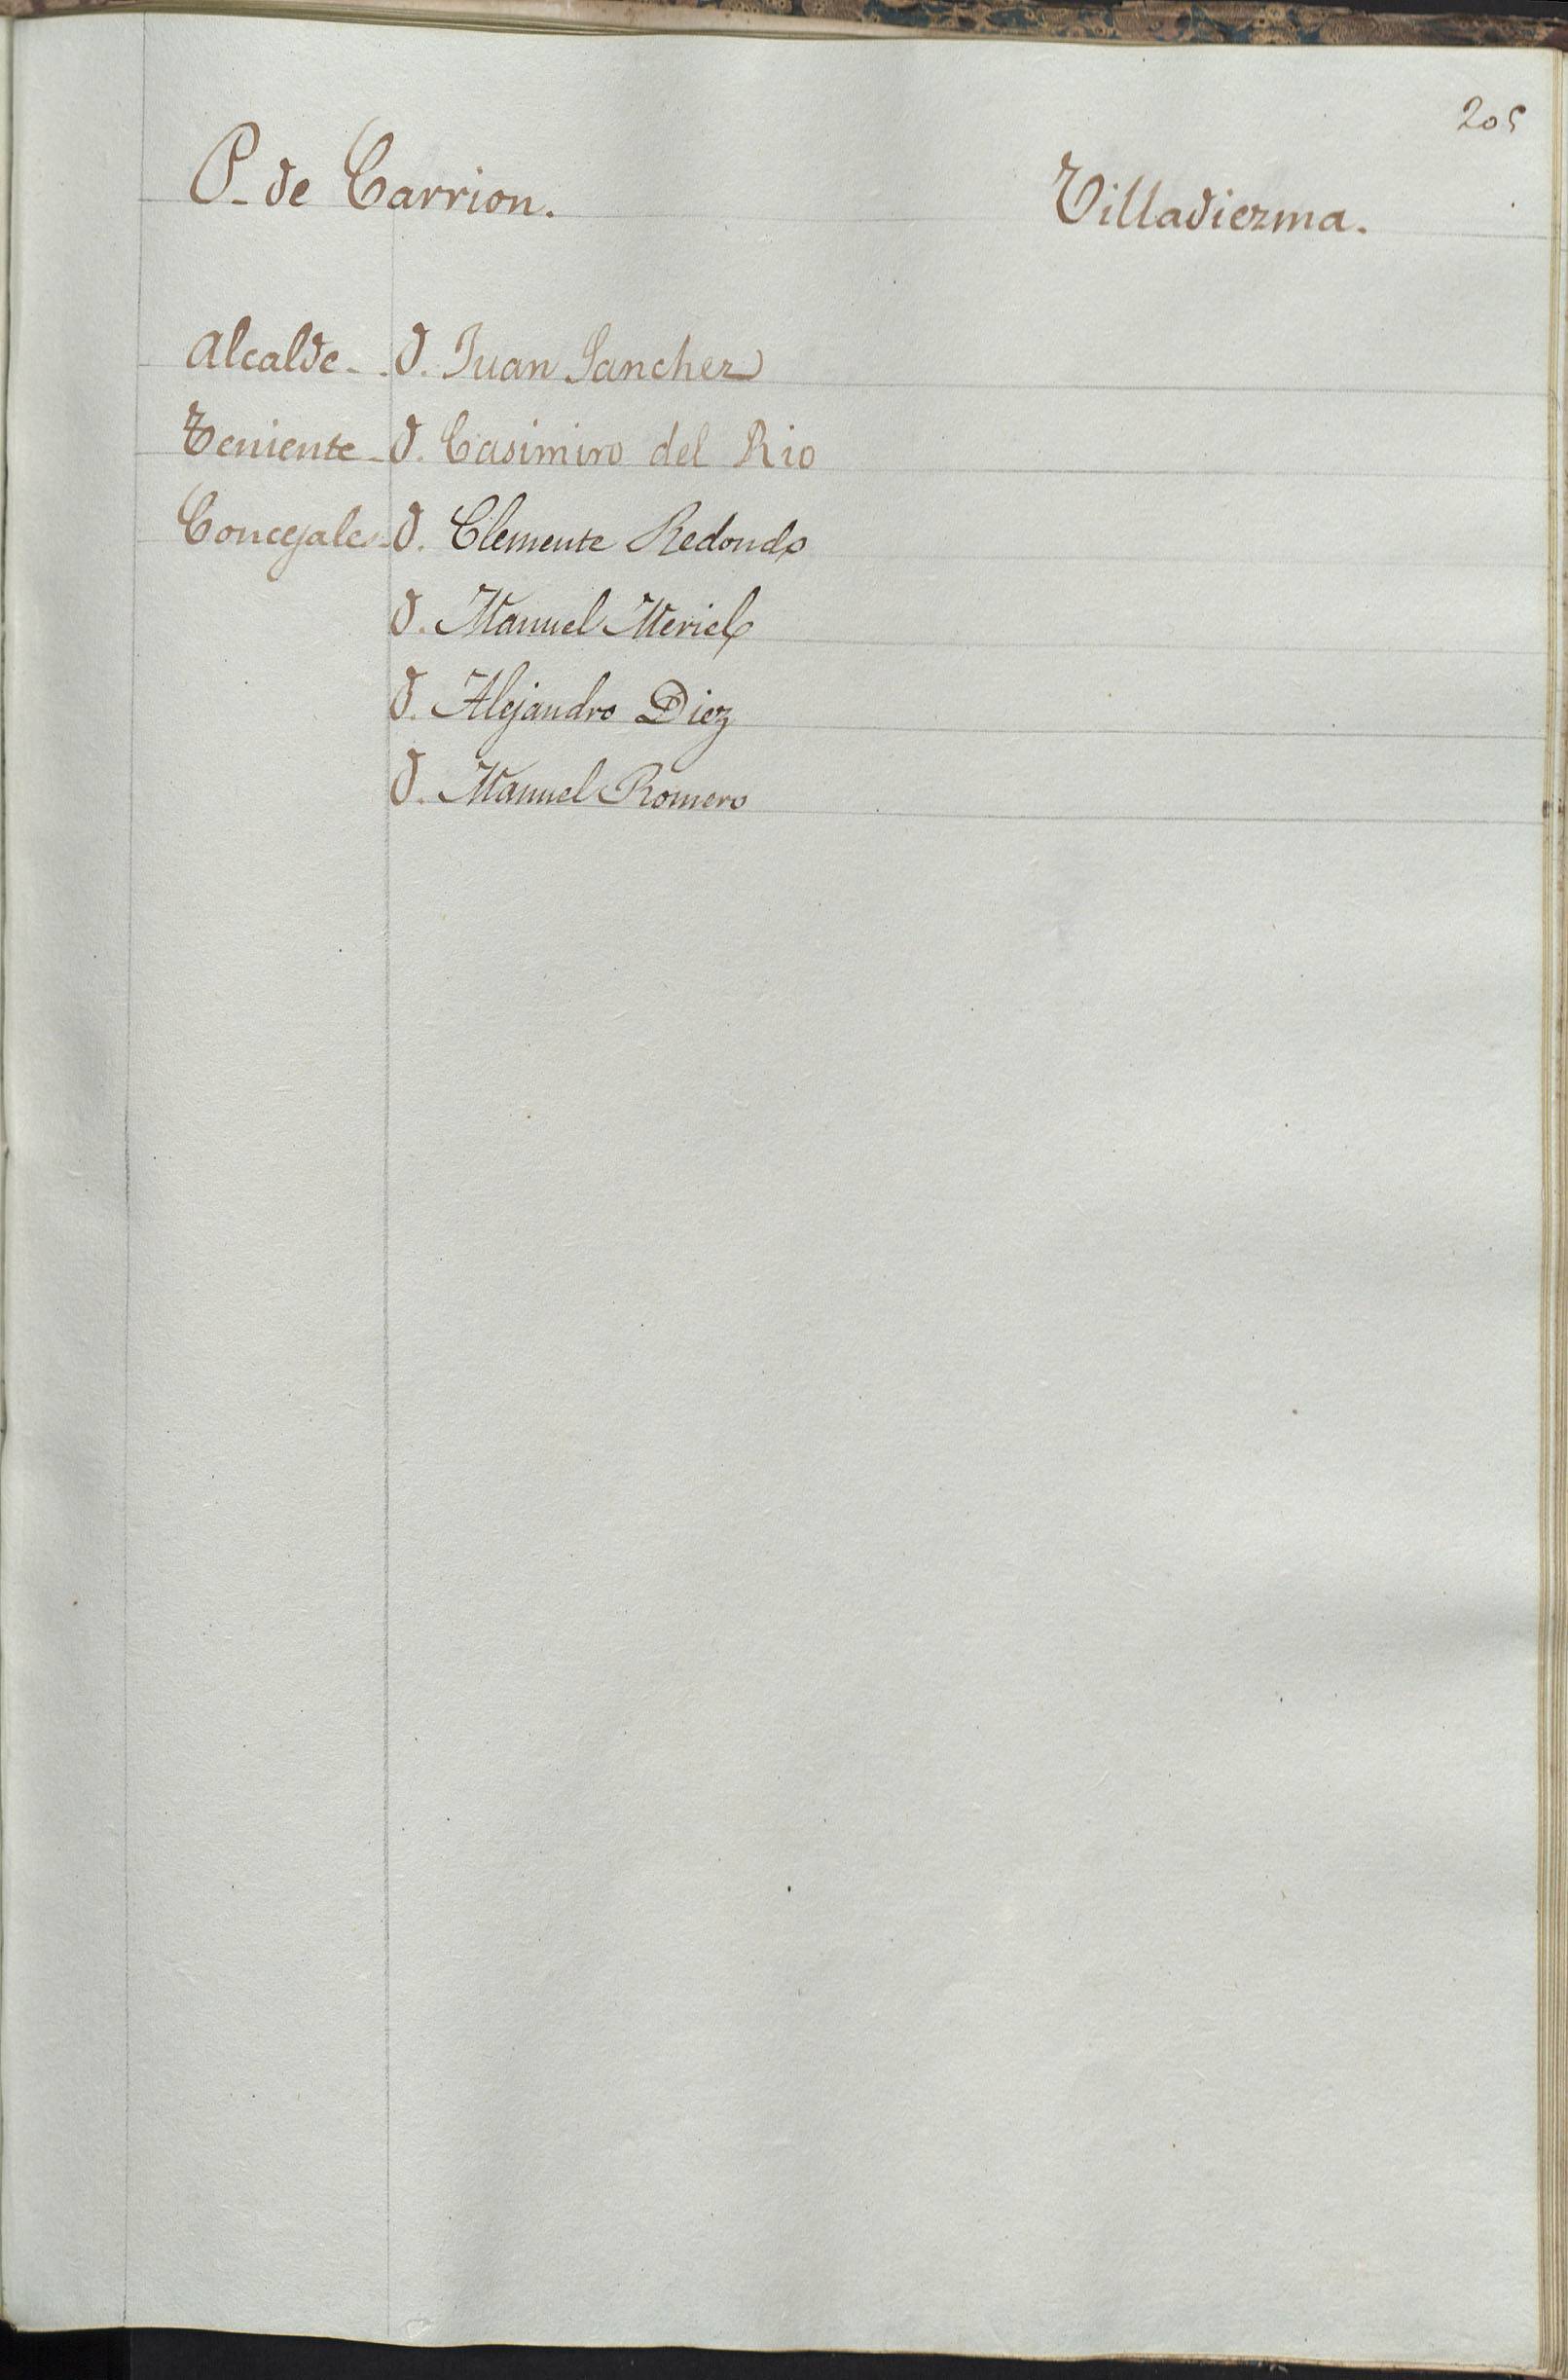 205
P. de Carrion. Villadiezma.
Alcalde - D. Juan Sanchez
Teniente - D. Casimiro del Rio
Concejales - D. Clemente Redondo
D. Manuel Meriel
D. Alejandro Diez
D. Manuel Romero